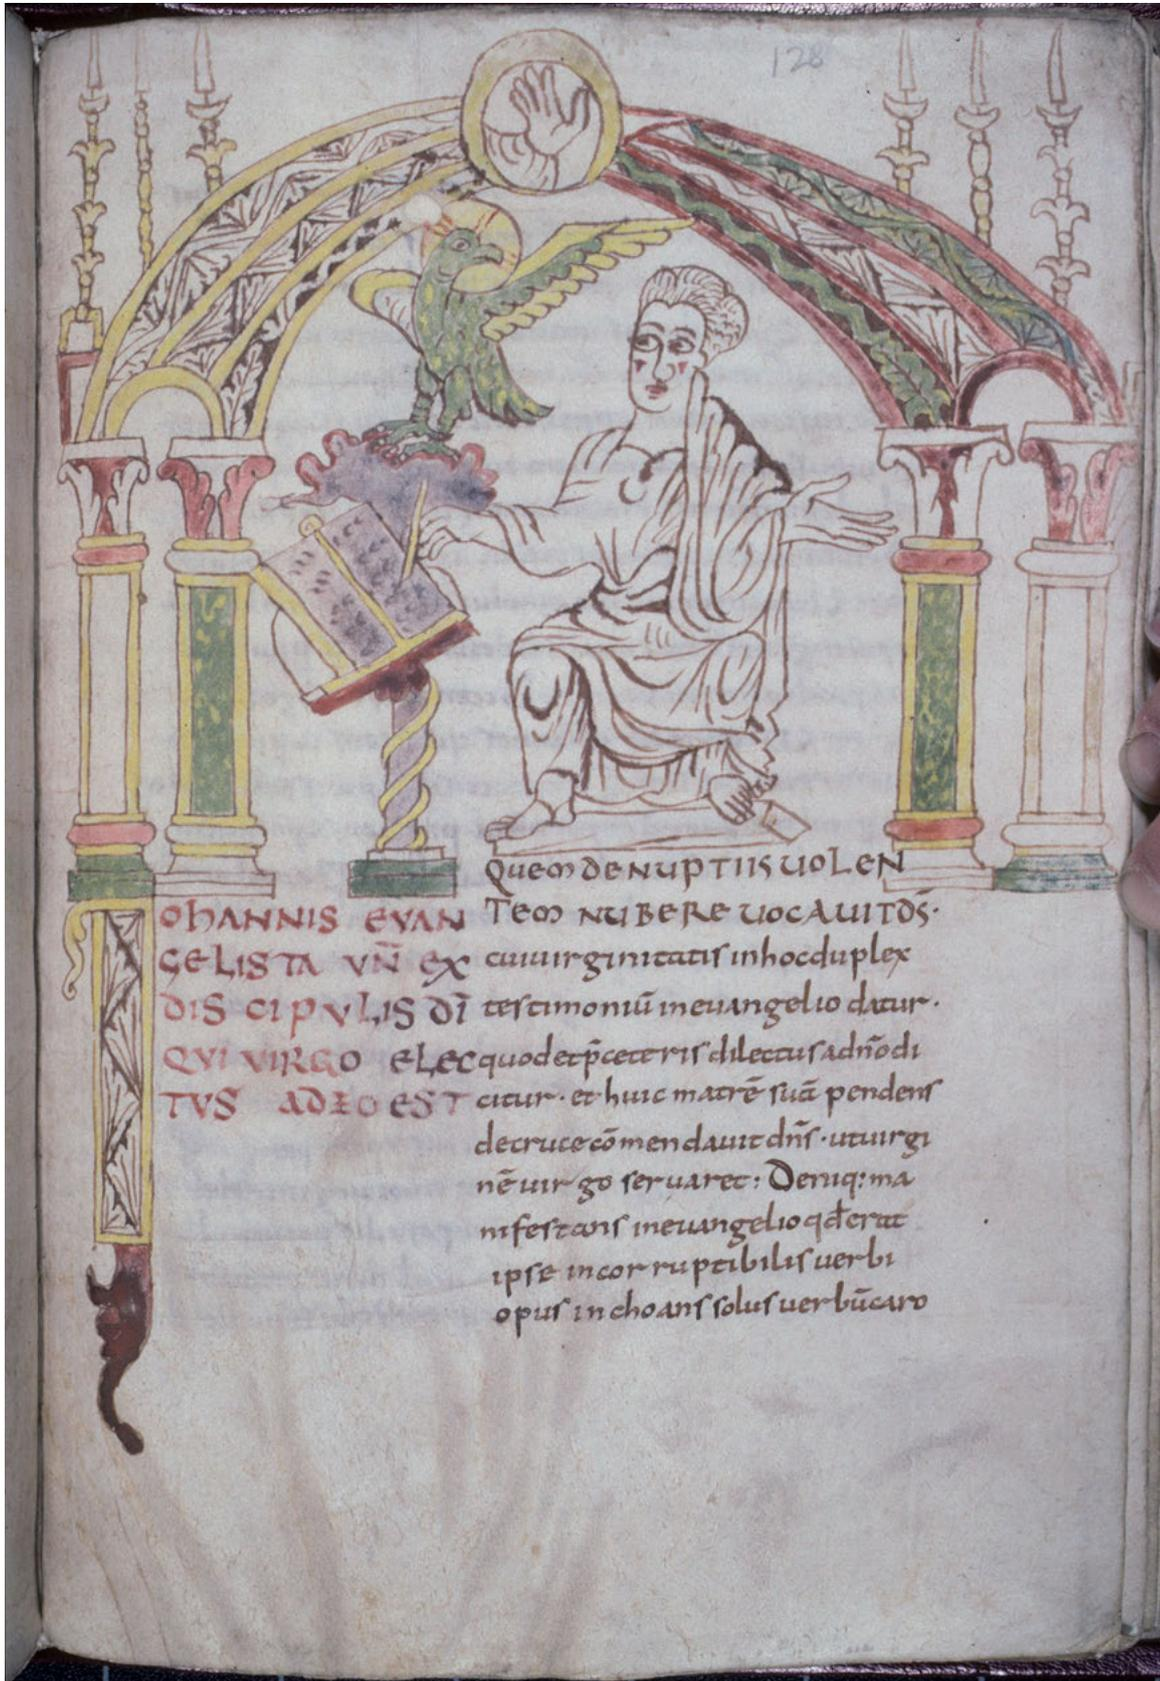 128
IOHANNIS EVAN
GELISTA VN̄ EX
DISCIPVLIS DĪ
QVI VIRGO ELEC
TVS AD̄O EST
QUEM DE NUPTIIS UOLEN
TEM NUBERE UOCAUIT D̄S·
cui uirginitatis in hoc duplex
testimoniū in euangelio datur·
quod et p̄ ceteris dilectus a dn̄o di
citur· et huic matrē suā pendens
de cruce cōmendauit dn̄s· ut uirgi
nē uirgo seruaret: Deniq: ma
nifestans in euangelio qđ erat
ipse incorruptibilis uerbi
opus inchoans solus uerbū caro